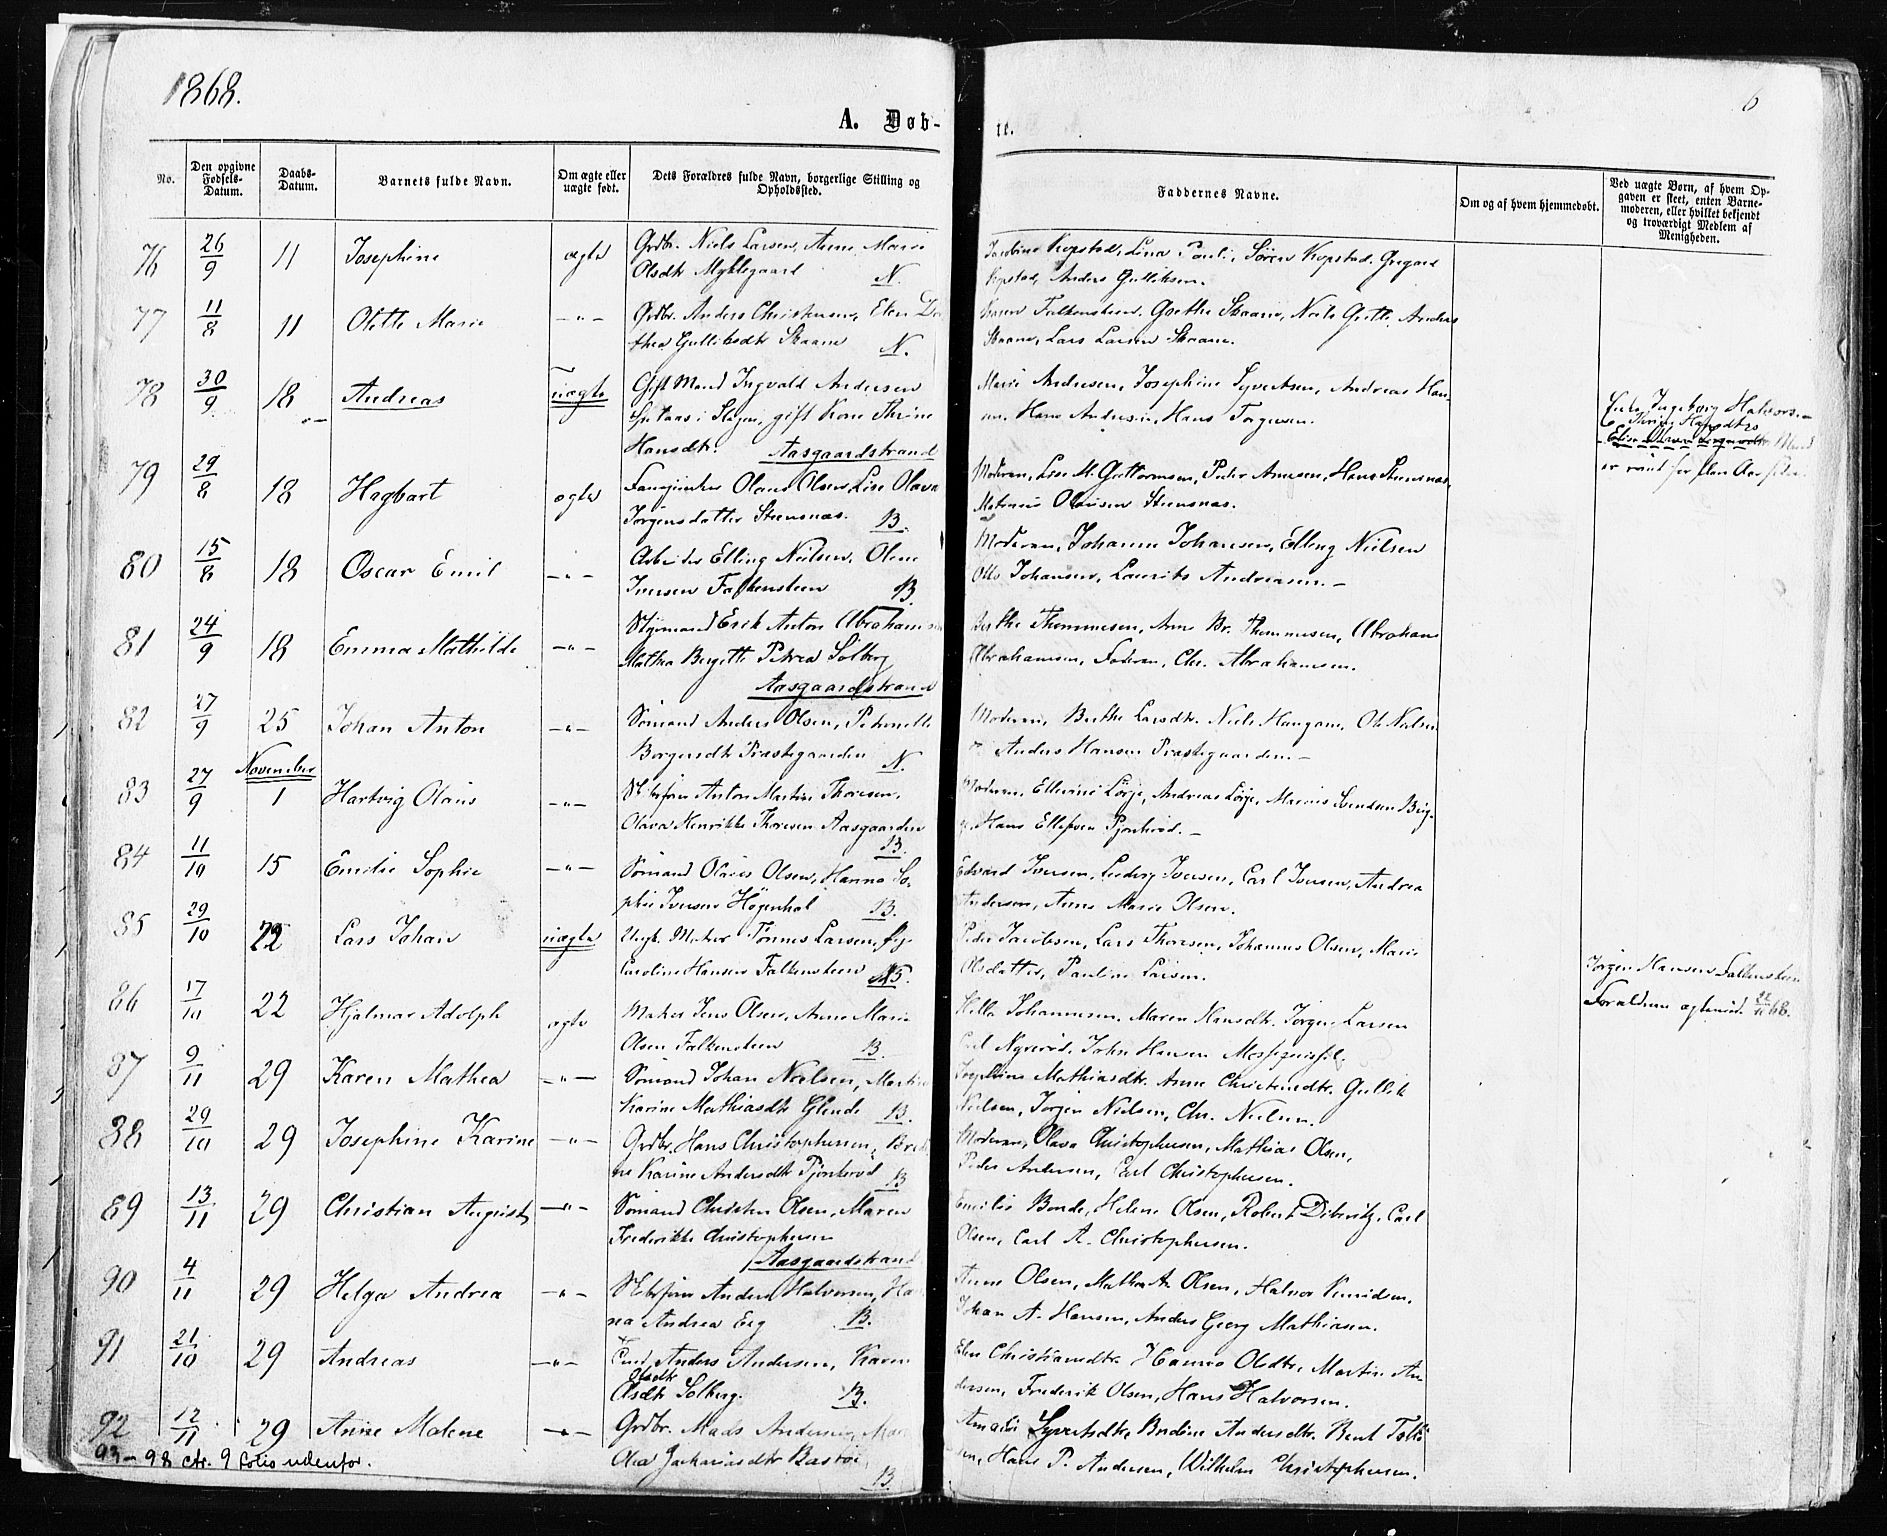 1868.
6
A. Døb-
te.
No.
Den opgivne Fødsels-Datum.
Daabs-Datum.
Barnets fulde Navn.
Om ægte eller uægte født.
Dets Forældres fulde Navn, borgerlige Stilling og Opholdssted.
Faddernes Navne.
Om og af hvem hjemmedøbt.
Ved uægte Børn, af hvem Opgaven er skeet, enten Barnemoderen, eller hvilket bekjendt og troværdigt Medlem af Menigheden.
76 26/9 11 Josephine ægte Grdbr. Niels Larsen, Anne Marie
Olsdtr Myklegaard N.
Kopstad, Lina Pauli, Søren Kopstad, Gregard
Kopstad, Anders Gulliksen.
77 11/8 11 Olette Marie -"- Grdbr. Anders Christensen, Elen Do
thea Gulliksdtr Skaane N.
Karen Falkensteen, Goethe Skaane, Niels Grette, Anders
Skaane, Lars Larsen Skaane.
78 30/9 18 Andreas uægte Gift Mand Ingvald Andersen
i Slagen, gift Kone Thrine
Hansdtr. Aasgaardstrand
Marie Andresen, Josephine Syvertsen, Andreas Han-
sen, Hans Andersen, Hans Torgersen.
Enke Ingeborg Halvors.
Thrine Hansdtrs
Mand
er reist for flere Aar siden
79 29/8 18 Hagbart ægte Olaus Olsen, Lise Olava
Jørgensdatter Steensnæs. B.
Moderen, Lise M. Guttormsen, Peder Arnesen, Hans Steensnæs,
Olausen Steensnæs.
80 15/8 18 Oscar Emil -"- Arbeider Elling Nielsen, Oline
Iversen Falkensteen B.
Moderen, Johanne Johansen, Elling Nielsen
Otto Johansen, Laurits Andreasen. -
81 24/9 18 Emma Mathilde -"- Styrmand Erik Anton Abrahamsen
Mathea Bergette Petrea Solberg
Aasgaardstrand
Berthe Thommesen, Anne Br. Thommesen, Abraham
Abrahamsen, Faderen, Chr. Abrahamsen.
82 27/9 25 Johan Anton -"- Sømand Anders Olsen, Petrenelle
Borgersdtr Præstegaarden N.
Moderen, Berthe Larsdtr. Niels Haugane, Ole Nielsen
Anders Hansen Præstegaarden. -
November
83 27/9 1 Hartvig Olaus -"- Anton Martin Thoresen,
Olava Henrikke Thoresen Aasgaarden
B.
Moderen, Ellevine Lørje, Andreas Lørje, Marius Svendsen Berg-
Hans Ellefsen Pjonkerød. -
84 11/10 15 Emilie Sophie -"- Sømand Olaus Olsen, Hanna So-
phie Iversen Høgenhal B.
Edvard Iversen, Ludvig Iversen, Carl Iversen, Andrea
Andersen, Anne Marie Olsen.
85 29/10 22 Lars Johan uægte Ungk. Matros Tønnes Larsen, Pige
Caroline Hansen Falkensteen B.
Peder Jacobsen, Lars Thoresen, Johannes Olsen, Marie
Olsdatter, Pauline Larsen.
Jørgen Hansen Falkensteen
Forældrene ægteviede 22/11 68.
86 17/10 22 Hjalmar Adolph ægte Matros Jens Olsen, Anne Marie
Olsen Falkensteen B.
Johannesen, Maren Hansdtr. Jørgen Larsen
Carl Nyrerød, John Hansen
87 9/11 29 Karen Mathea -"- Sømand Johan Nielsen, Martine
Karine Mathiasdtr Glende B.
Josephine Mathiasdtr. Anne Christensdtr. Gullik
Nielsen, Jørgen Nielsen, Chr. Nielsen.
88 29/10 29 Josephine Karine -"- Grdbr. Hans Christophersen,
ne Karine Andersdtr Pjonkerød B
Moderen, Olava Christophersen, Mathias Olsen,
Peder Andersen, Carl Christophersen.
89 13/11 29 Christian August -"- Sømand Christen Olsen, Maren
Frederikke Christophersen
Aasgaardstrand
Emilie Bonde, Helene Olsen, Robert Dibwitz, Carl
Olsen, Carl A. Christophersen.
90 4/11 29 Helga Andrea -"- Anders Halvorsen, Ha
na Andrea Eeg B.
Anne Olsen, Mathea A. Olsen, Halvor
Johan A. Hansen, Anders Georg Mathiasen.
91 21/10 29 Andreas -"- Anders Andersen, Karen
Olsdtr
Olsdtr Solberg. B.
Elen Christiansdtr. Hanna Olsdtr, Martin An
dersen, Frederik Olsen, Hans Halvorsen.
92 12/11 29 Anne Malene -"- Grdbr. Mads Andersen,
Olea Jachariasdtr Bastøe
B.
Amalie Syvertsdtr, Bredine Andersdtr. Bent
Hans P. Andersen, Wilhelm Christophersen.
93 - 98 ctr. 9 folio udenfor.